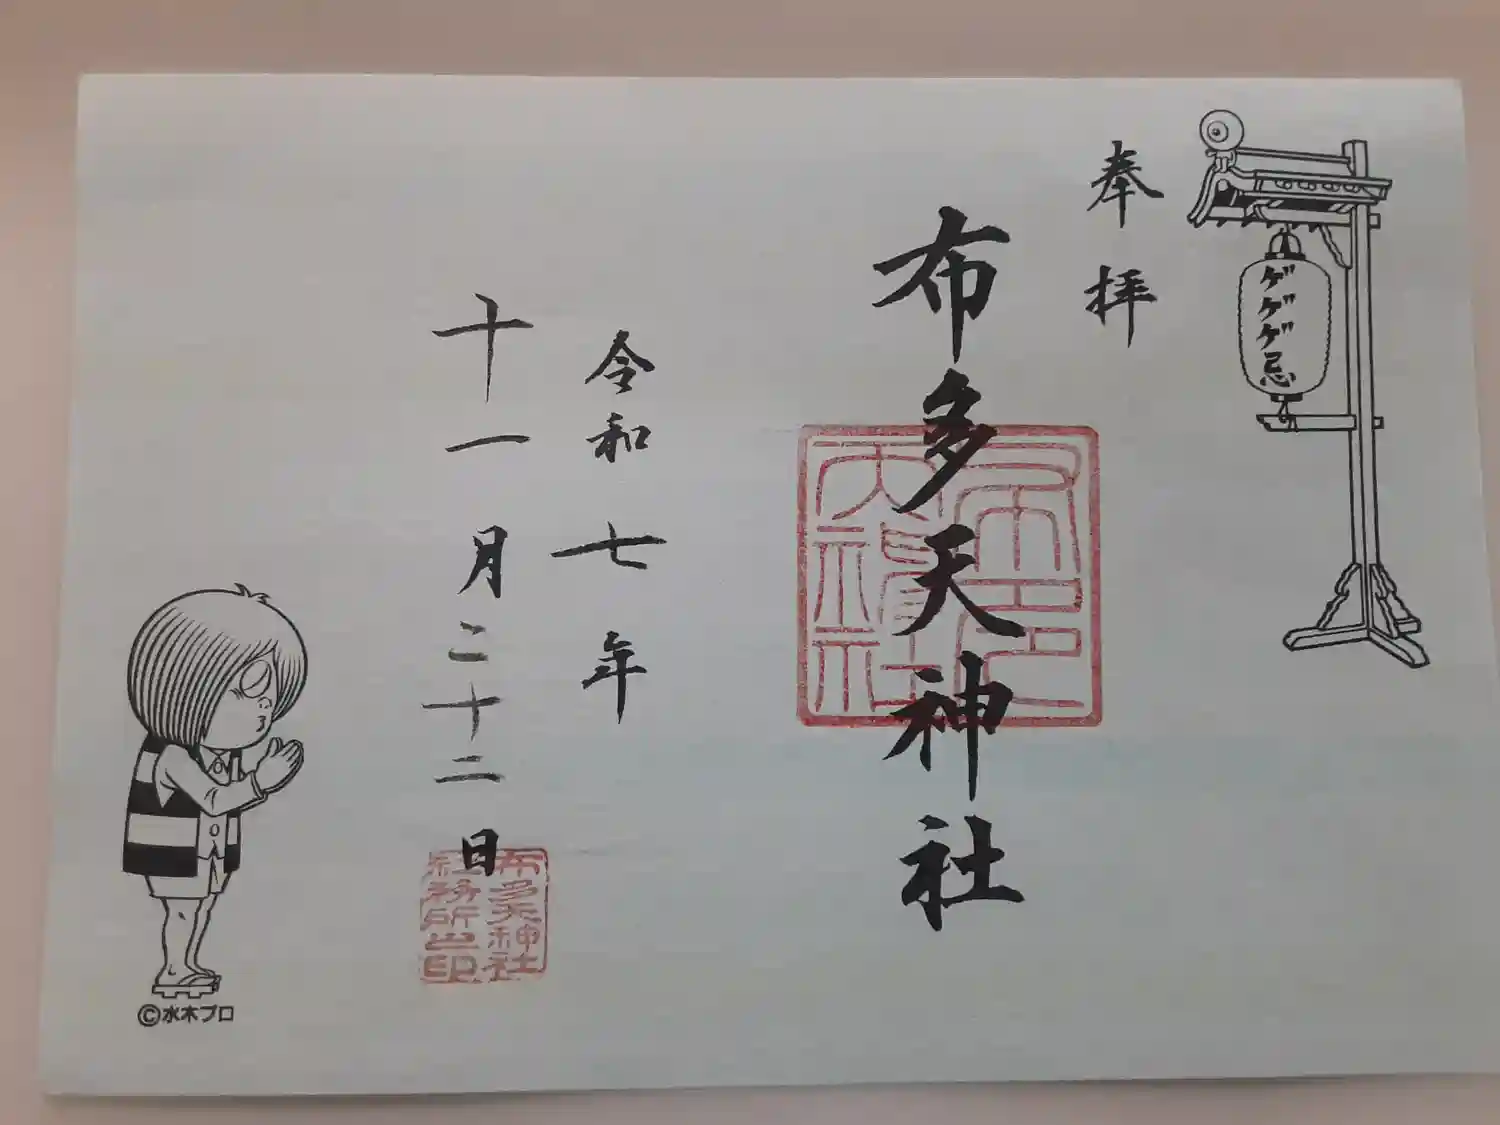 ゲゲゲ忌
奉拝
布多天神社
令和七年
十一月二十二日
布多天神社
社務所之印
©水木プロ